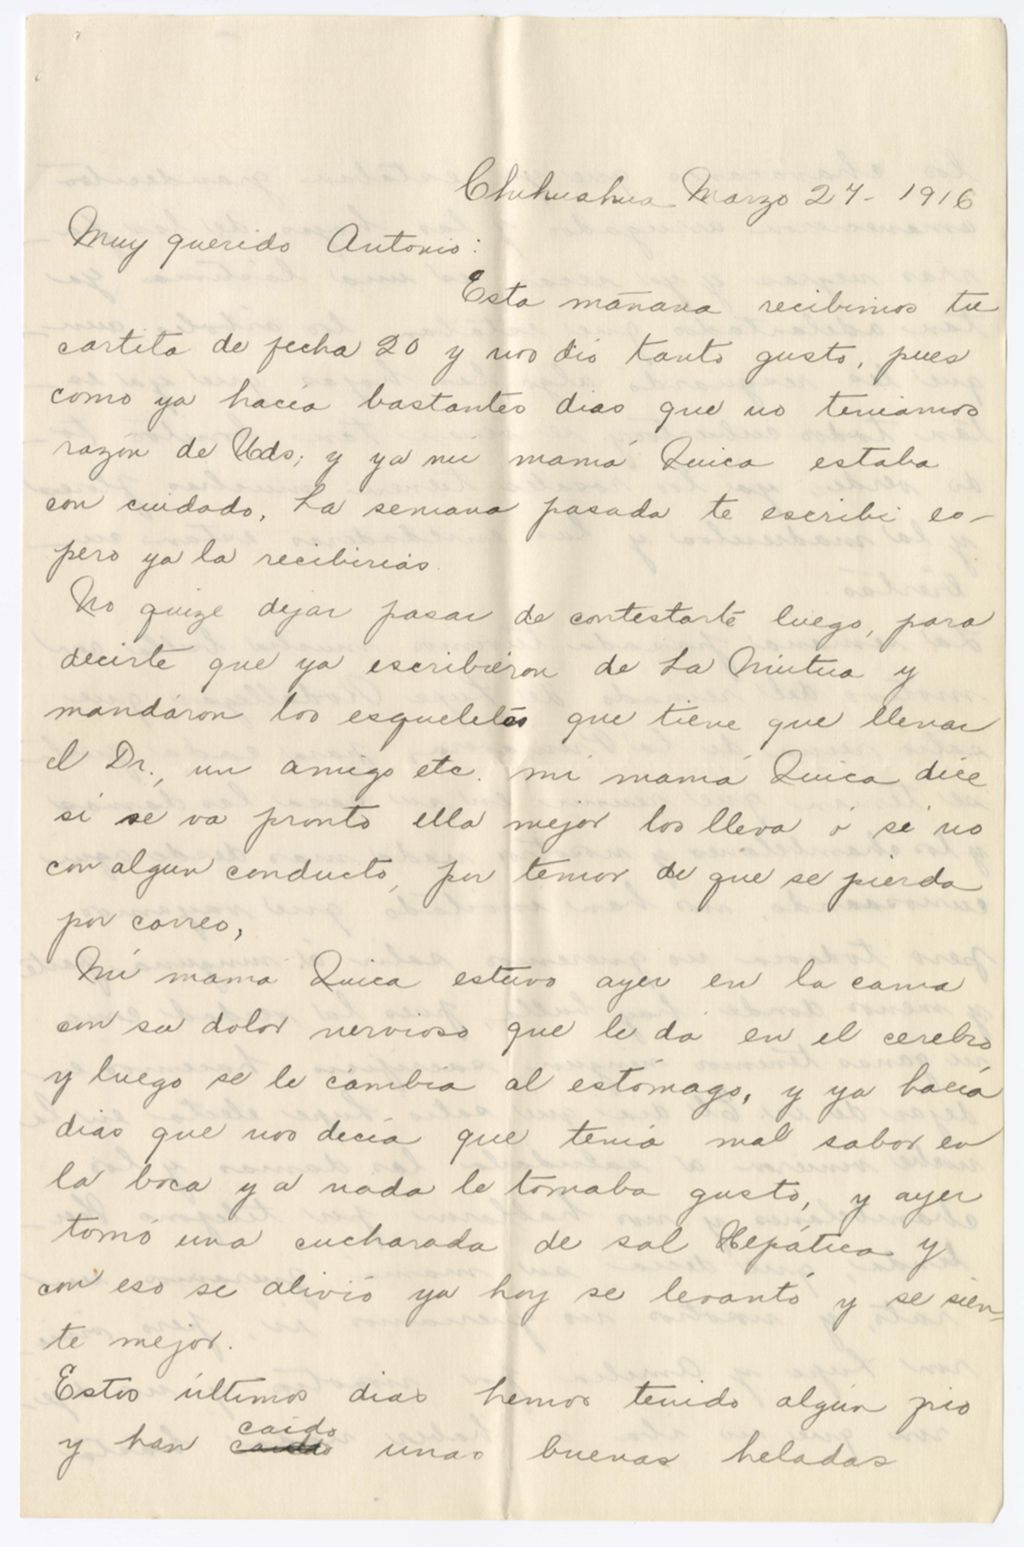 Chihuahua Marzo 27-1916
Muy querido Antonio:
Esta mañana recibimos tu
cartita de fecha 20 y nos dió tanto gusto, pues
como ya hacía bastantes dias que no teniamos
razón de Uds; y ya mi mamá Quica estaba
con cuidado, La semana pasada te escribi es-
pero ya la recibirias.
No quize dejar pasar de contestarte luego, para
decirte que ya escribieron de La Mutua y
mandáron los esqueletos que tiene que llenar
el Dr., un amigo etc. mi mamá Quica dice
si se va pronto ella mejor los lleva ó si no
con algun conducto, por temor de que se pierda
por correo,
Mi mamá Quica estuvo ayer en la cama
con su dolor nervioso que le dá en el cerebro
y luego se le cambia al estómago, y ya hacía
dias que nos decía que tenía mal sabor en
la boca y a nada le tomaba gusto, y ayer
tomó una cucharada de sal Hepática y
con eso se alivió ya hoy se levantó y se sien-
te mejor.
Estos últimos dias hemos tenido algún frio
y han caido unas buenas heladas